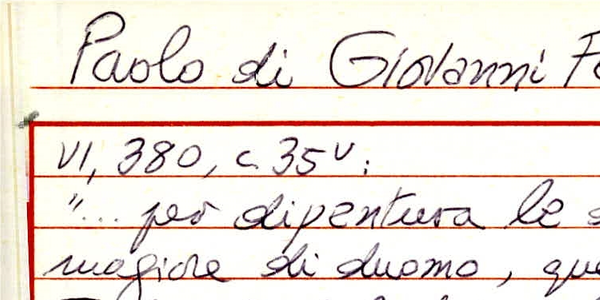 Paolo di Giovanni
VI, 380, c. 35v:
"... per dipentura le
magiore di duomo,